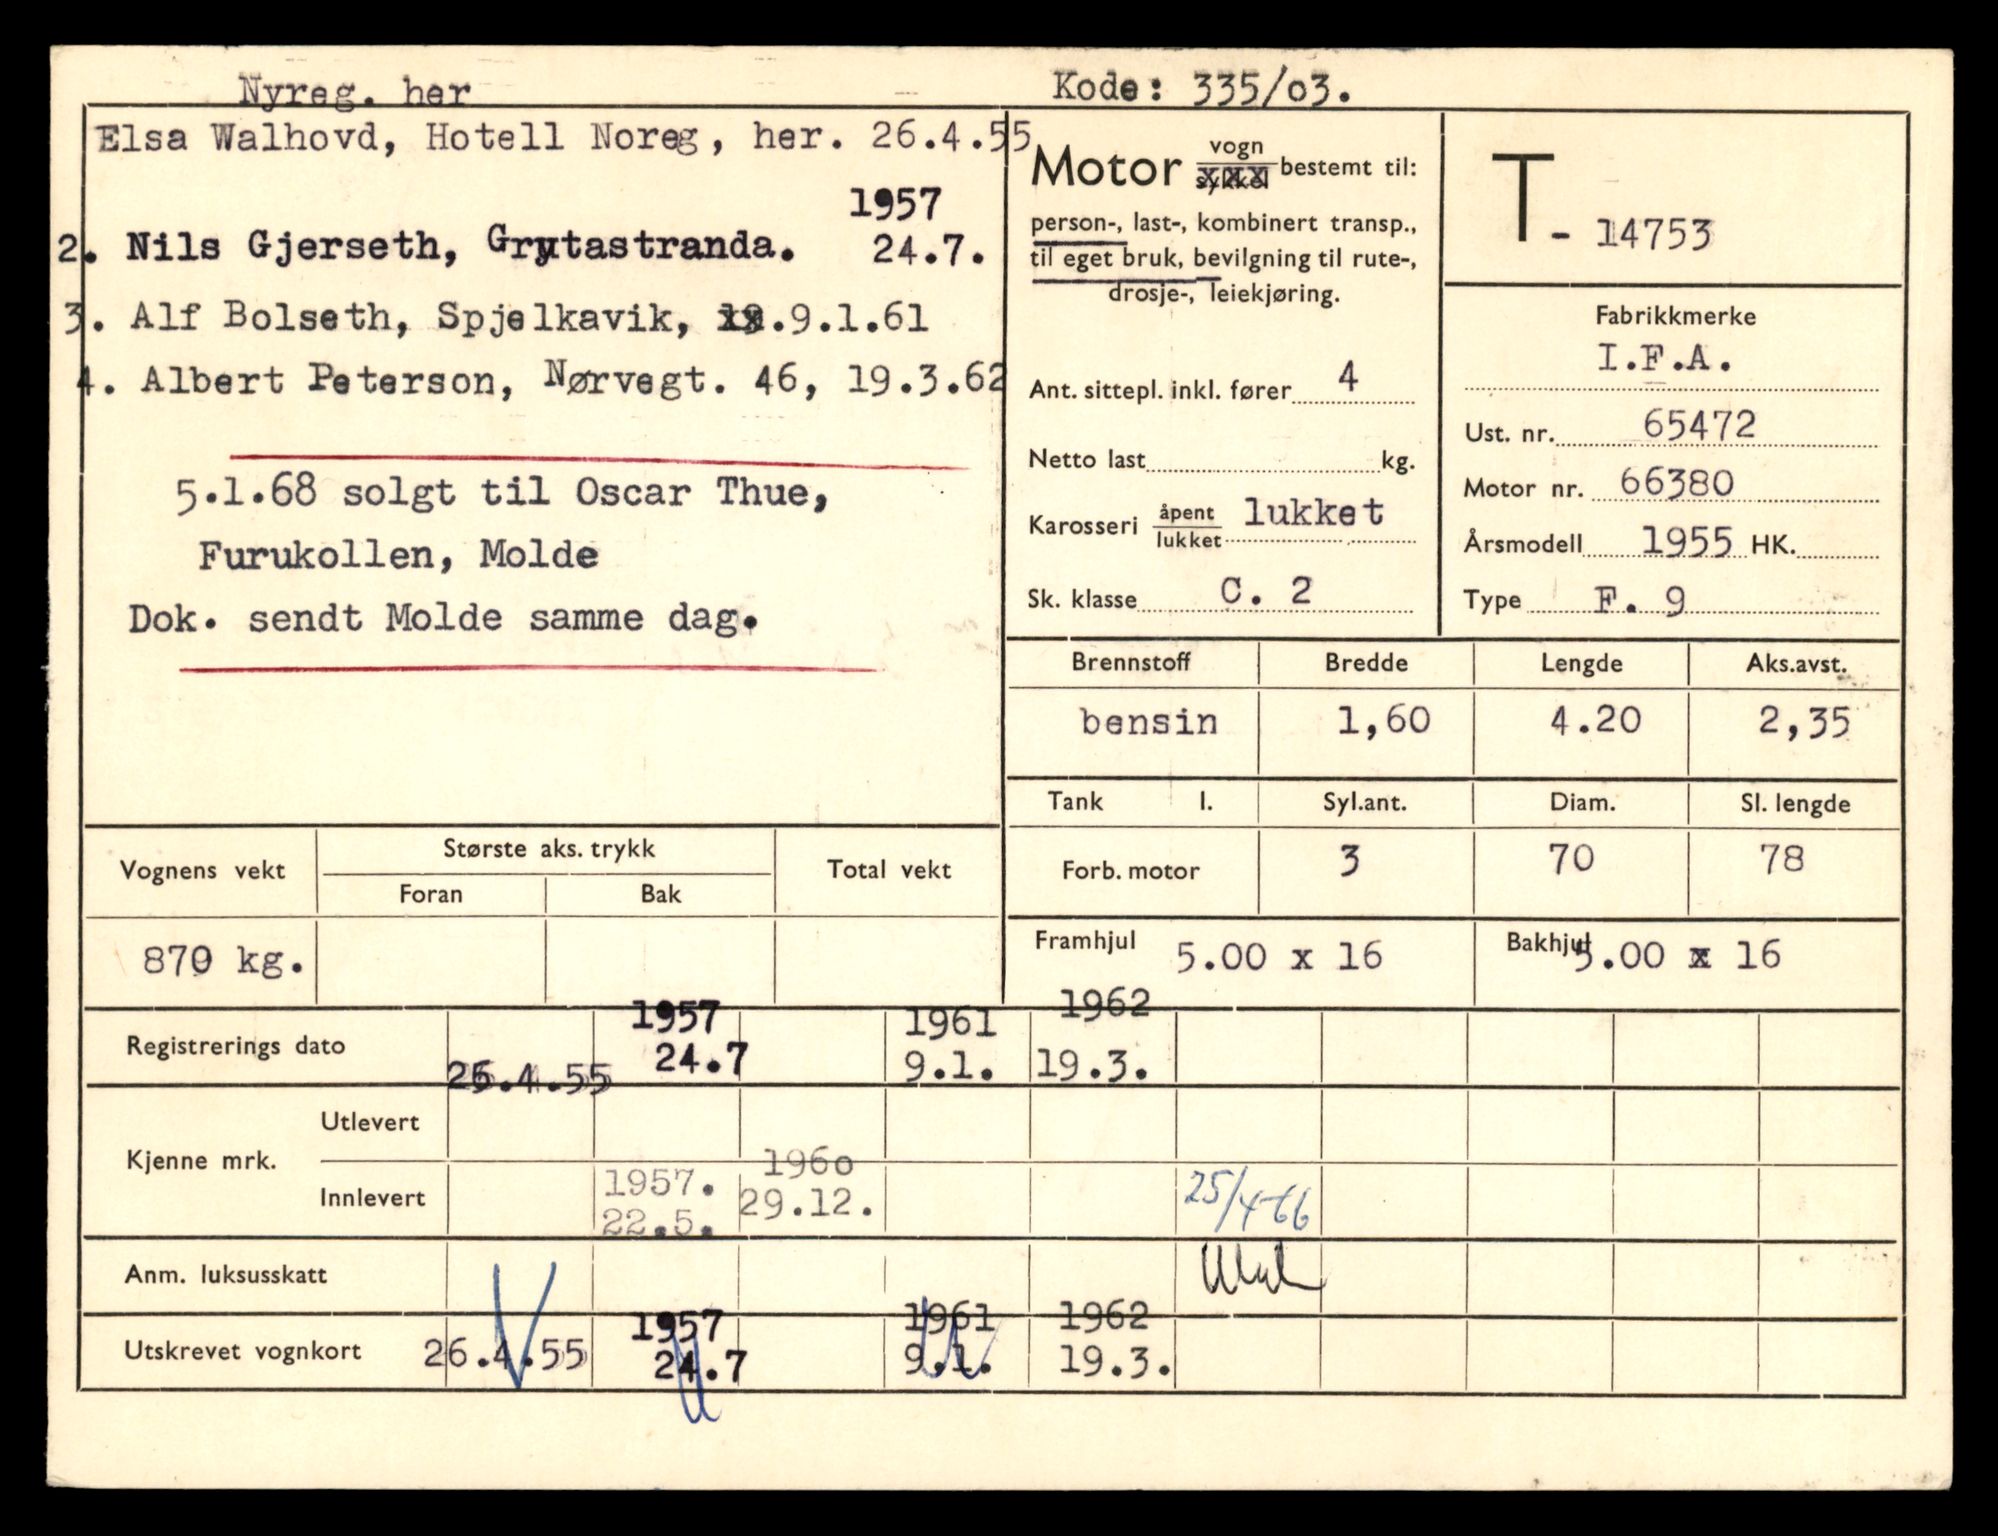 Nyreg. her
Kode: 335/03.
Elsa Walhovd, Hotell Noreg, her. 26.4.55
1957
2. Nils Gjerseth, Grytastranda. 24.7.
3. Alf Bolseth, Spjelkavik, 9.1.61
4. Albert Peterson, Nørvegt. 46, 19.3.62
5.1.68 solgt til Oscar Thue,
Furukollen, Molde
Dok. sendt Molde samme dag.
Motor vogn sykkel bestemt til:
person-, last-, kombinert transp.,
til eget bruk, bevilgning til rute-,
drosje-, leiekjøring.
Ant. sittepl. inkl. fører 4
Netto last kg.
Karosseri åpent lukket lukket
Sk. klasse C. 2
T - 14753
Fabrikkmerke
I.F.A.
Ust. nr. 65472
Motor nr. 66380
Årsmodell 1955 HK.
Type F. 9
Brennstoff Bredde Lengde Aks.avst.
bensin 1,60 4.20 2,35
Tank l. Syl.ant. Diam. Sl. lengde
Forb. motor 3 70 78
Framhjul 5.00 x 16 Bakhjul 5.00 x 16
Vognens vekt Største aks. trykk Total vekt
Foran Bak
870 kg.
1957 1961 1962
Registrerings dato 26.4.55 24.7 9.1. 19.3.
Utlevert
Kjenne mrk.
1957. 1960
Innlevert 22.5. 29.12. 25/4-66
Anm. luksusskatt
1957 1961 1962
Utskrevet vognkort 26.4.55 24.7 9.1. 19.3.